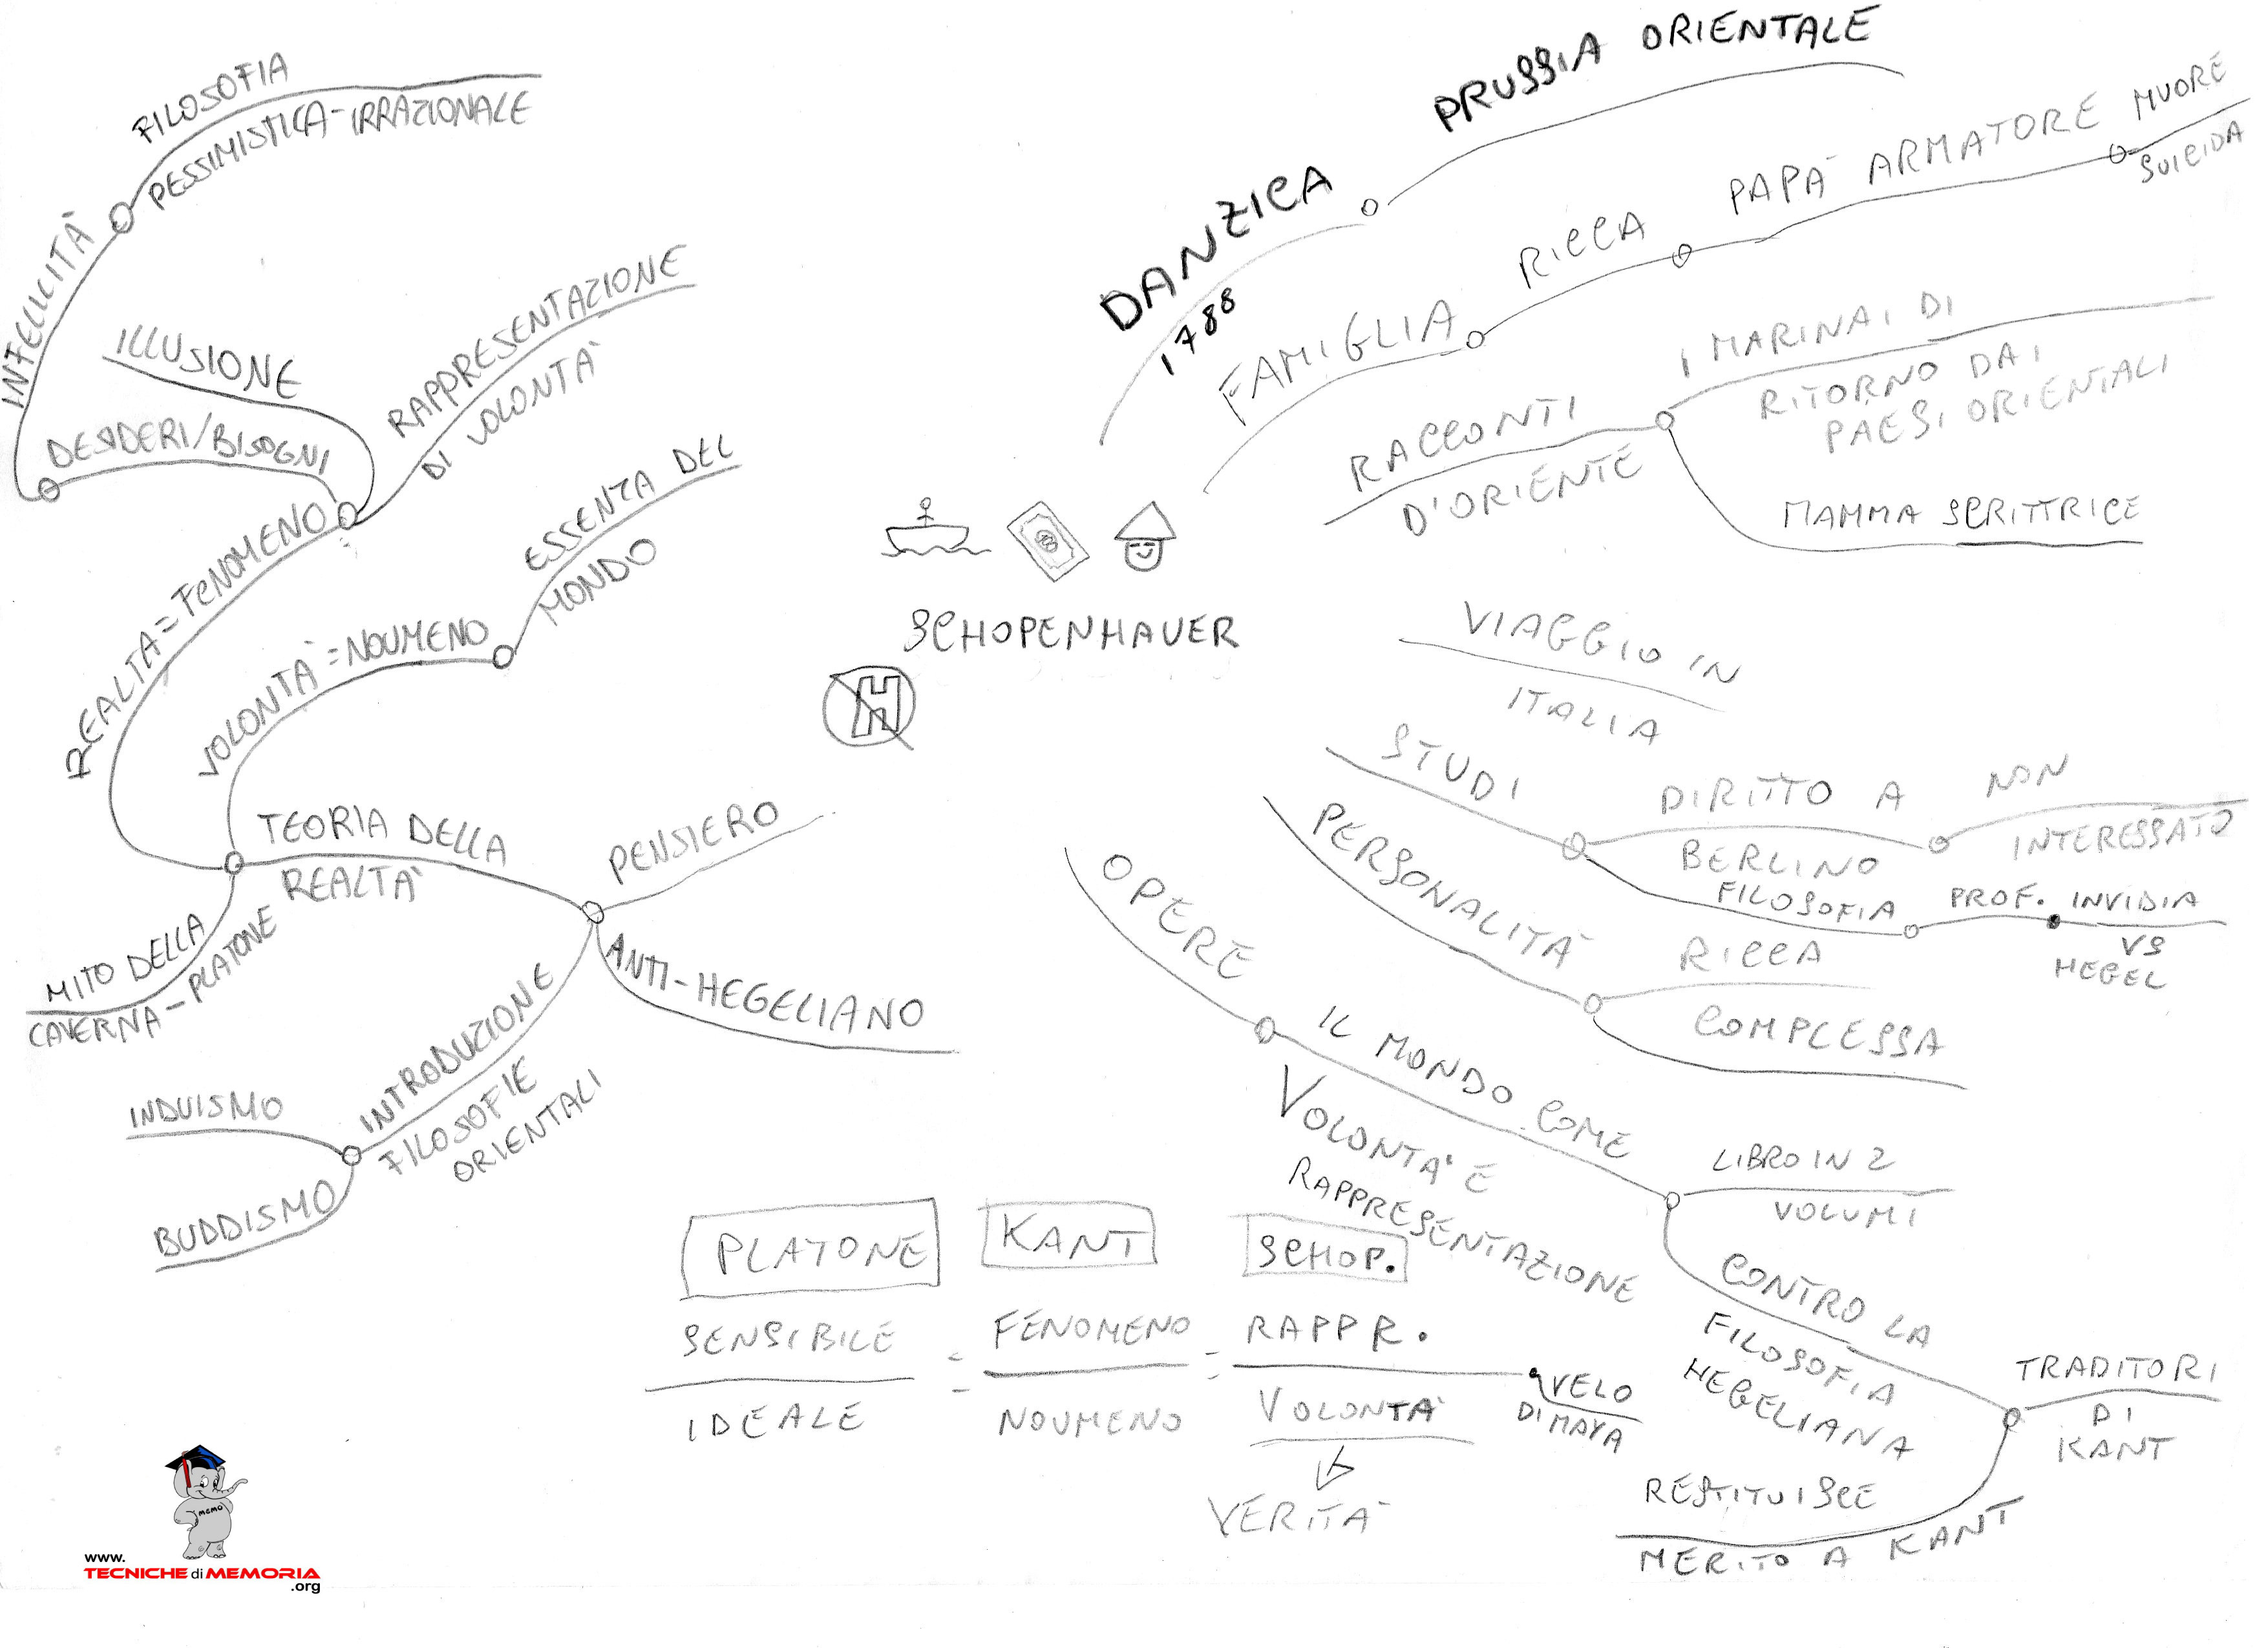 DANZICA
1788
PRUSSIA ORIENTALE
FAMIGLIA
RICCA
PAPA' ARMATORE
MUORE
SUICIDA
RACCONTI
D'ORIENTE
I MARINAI DI
RITORNO DAI
PAESI ORIENTALI
MAMMA SCRITTRICE
SCHOPENHAUER
H
VIAGGIO IN
ITALIA
STUDI
DIRITTO A
BERLINO
NON
INTERESSATO
FILOSOFIA
PROF. INVIDIA
VS
HEGEL
PERSONALITÀ
RICCA
COMPLESSA
OPERE
IL MONDO COME
VOLONTA' E
RAPPRESENTAZIONE
LIBRO IN 2
VOLUMI
CONTRO LA
FILOSOFIA
HEGELIANA
TRADITORI
DI
KANT
RESTITUISCE
MERITO A KANT
PENSIERO
ANTI-HEGELIANO
INTRODUZIONE
FILOSOFIE
ORIENTALI
INDUISMO
BUDDISMO
TEORIA DELLA
REALTA'
MITO DELLA
CAVERNA-PLATONE
VOLONTÀ=NOUMENO
ESSENZA DEL
MONDO
REALTÀ=FENOMENO
RAPPRESENTAZIONE
DI VOLONTÀ
ILLUSIONE
DESIDERI/BISOGNI
INFELICITÀ
FILOSOFIA
PESSIMISTICA-IRRAZIONALE
PLATONE
KANT
SCHOP.
SENSIBILE = FENOMENO = RAPPR.
IDEALE NOUMENO VOLONTA'
VELO
DI MAYA
VERITA'
MEMO
www.
TECNICHE di MEMORIA
.org